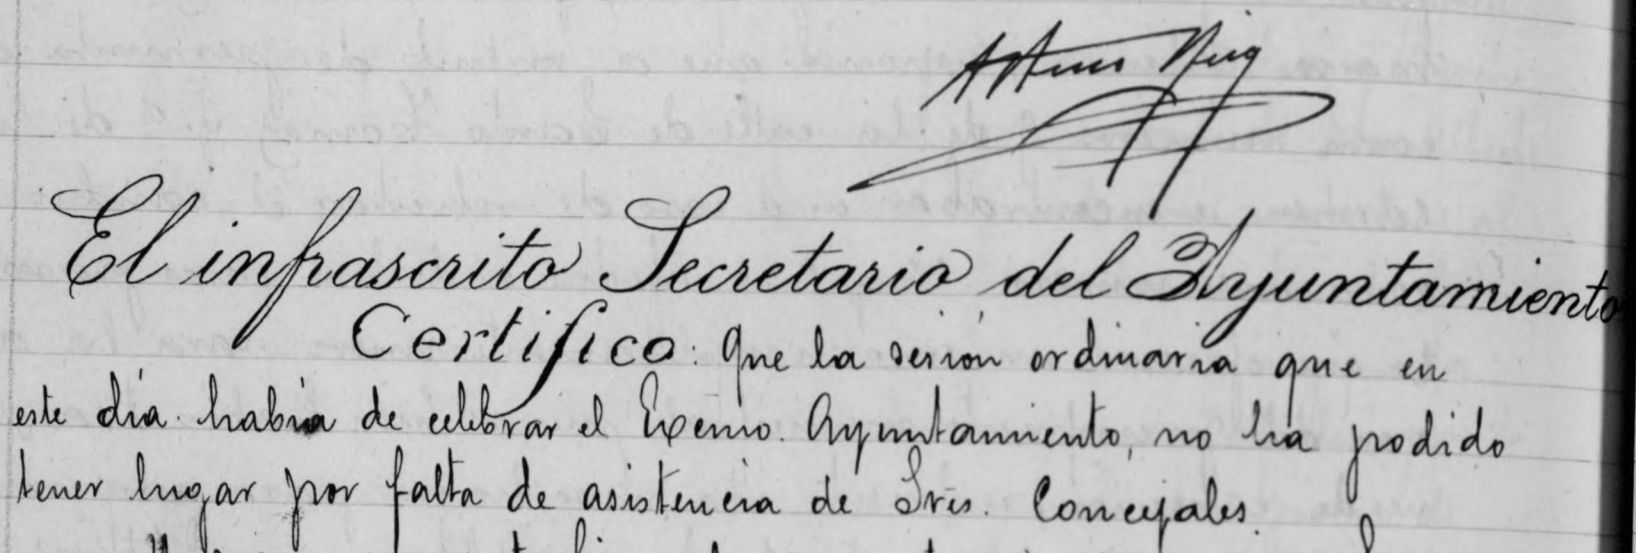 Arturo Puig
El infrascrito Secretario del Ayuntamiento
Certifico: Que la sesión ordinaria que en
este día habia de celebrar el Excmo. Ayuntamiento, no ha podido
tener lugar por falta de asistencia de Sres. Concejales.